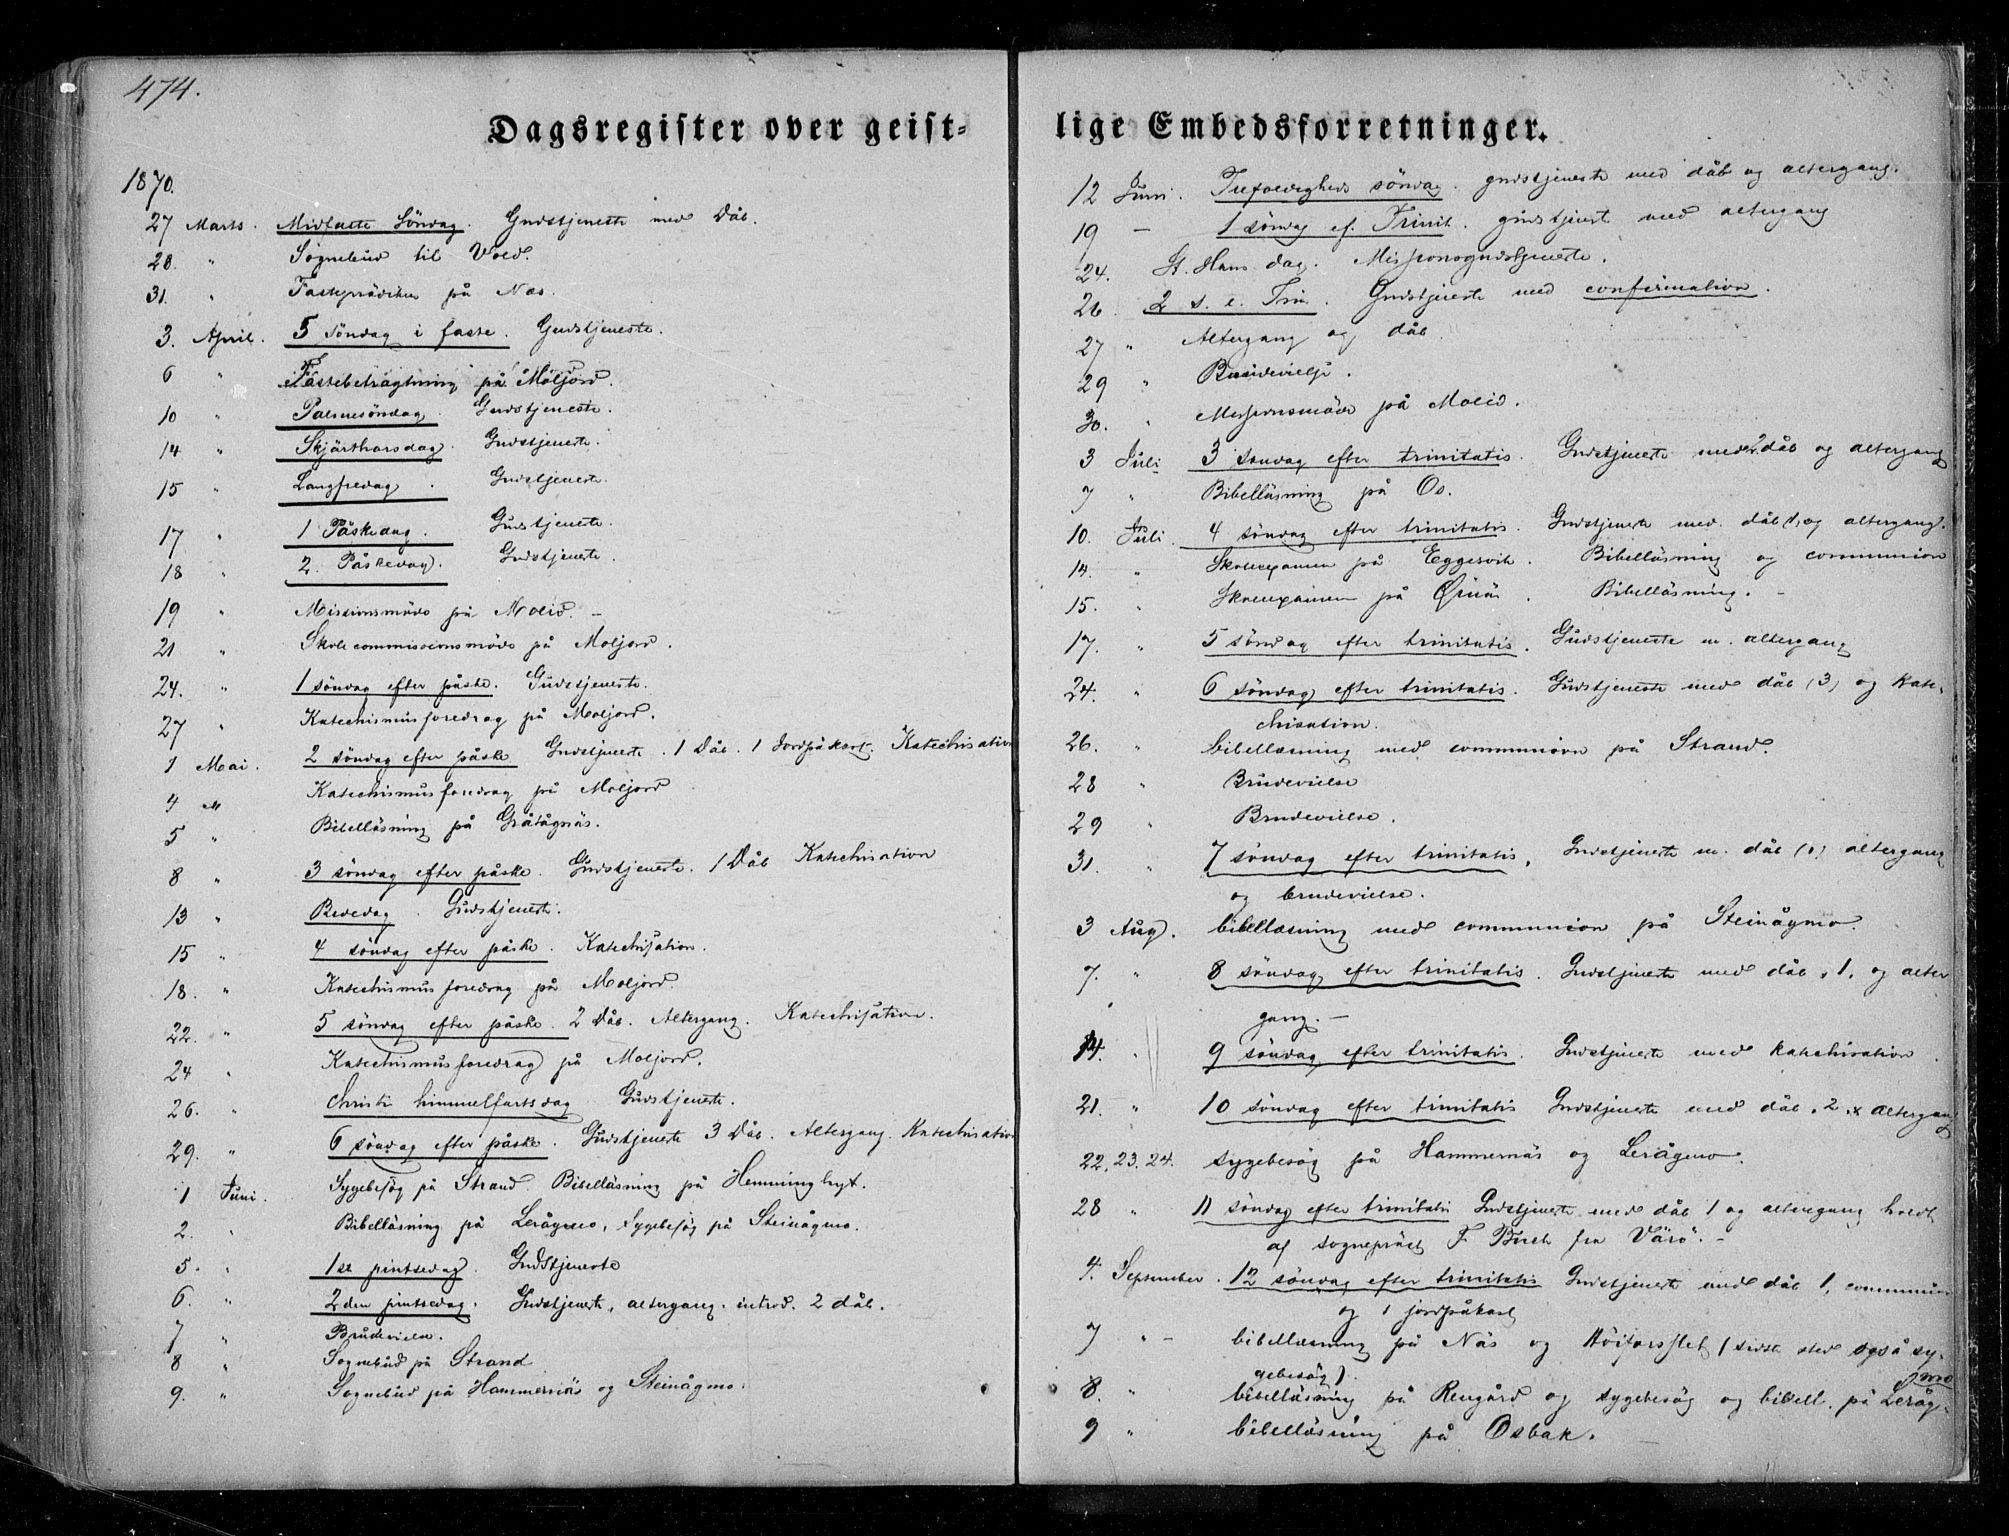 474.
Dagsregister over geist-
1870.
27 Marts. Midfaste Söndag. Gudstjeneste med Dåb.
28. " Sognebud til Vold.
31. " Fasteprädiken på Næs.
3. April. 5 söndag i faste. Gudstjeneste.
6 " Fastebetragtning på Moljord.
10 " Palmesöndag. Gudstjeneste.
14 " Skjärthorsdag. Gudstjeneste.
15 " Langfredag. Gudstjeneste.
17 " 1 Påskedag. Gudstjeneste.
18 " 2. Påskedag. Gudstjeneste.
19 " Missionsmöde på Moeid. –
21 " Skolecommissionsmöde på Moljord.
24. " 1 söndag efter påske. Gudstjeneste.
27 " Katechismusforedrag på Moljord.
1 Mai. 2 söndag efter påske Gudstjeneste. 1 Dåb. 1 Jordpåkast. Katechisation
4 " Katechismusforedrag på Moljord
5 " Bibelläsning på Gråtågnäs.
8 " 3 söndag efter påske. Gudstjeneste. 1 Dåb Katechisation
13 " Bededag. Gudstjeneste.
15 " 4 söndag efter påske. Katechisation.
18. " Katechismusforedrag på Moljord.
22. " 5 söndag efter påske. 2 Dåb. Altergang. Katechisation.
24 " Katechismusforedrag på Moljord.
26. " Christi himmelfartsdag Gudstjeneste.
29. " 6 söndag efter påske. Gudstjeneste 3 Dåb. Altergang. Katechisation
1 Juni. Sygebesög på Strand. Bibelläsning på Hemminghyt.
2. " Bibelläsning på Lerågmo, Sygebesög på Steinågmo.
5. " 1ste pintsedag. Gudstjeneste
6. " 2den pintsedag. Gudstjeneste, altergang. introd. 2 dåb.
7 " Brudevielse.
8 " Sognebud på Strand
9. " Sognebud på Hammernäs og Steinågmo.
lige Embedsforretninger.
12 Juni. Trefoldigheds söndag. gudstjeneste med dåb og altergang.
19 – 1 söndag ef. Trinit. gudstjenest med altergang
24. St. Hans dag. Missionsgudstjeneste.
26 2 s. e. Trin. Gudstjeneste med confirmation.
27 " Altergang og dåb.
29 " Brudevielse.
30. " Missionsmöde på Moeid.
3 Juli 3 söndag efter trinitatis. Gudstjeneste med 2 dåb og altergang
7 " Bibelläsning på Os.
10. Juli. 4 söndag efter trinitatis. Gudstjeneste med. dåb 1, og altergang.
14. " Skoleexamen på Eggesvik. Bibelläsning og communion
15. " Skoleexamen på. Bibelläsning. –
17. " 5 söndag efter trinitatis. Gudstjeneste m. altergang
24. " 6 söndag efter trinitatis. Gudstjeneste med dåb (3) og kate-
chisation.
26. " bibellæsning med communion på Strand.
28 " Brudevielse
29 " Brudevielse.
31. " 7 söndag efter trinitatis. Gudstjeneste m. dåb altergang
og brudevielse.
3 Aug. bibellæsning med communion på Steinågmo.
7. " 8 söndag efter trinitatis. Gudstjeneste med dåb, 1, og alter
gang. –
14. " 9 söndag efter trinitatis. Gudstjeneste med katechisation.
21. " 10 söndag efter trinitatis Gudstjeneste med dåb, 2, & altergang
22, 23. 24. sygebesög på Hammernäs og Lerågmo.
28 " 11 söndag efter trinitatis Gudstjeneste med dåb 1 og altergang holdt
af sognepräst F. Buch fra Värö. –
4. September. 12 söndag efter trinitatis Gudstjeneste med dåb 1, communion
og 1 jordpåkast
7 " – bibellæsning på Näs og Höiforslet (sidste sted også sy-
gebesög).
8. " bibelläsning på Rengård og sygebesög og bibell. på Leråg-
mo
9 " bibelläsning på Osbak.